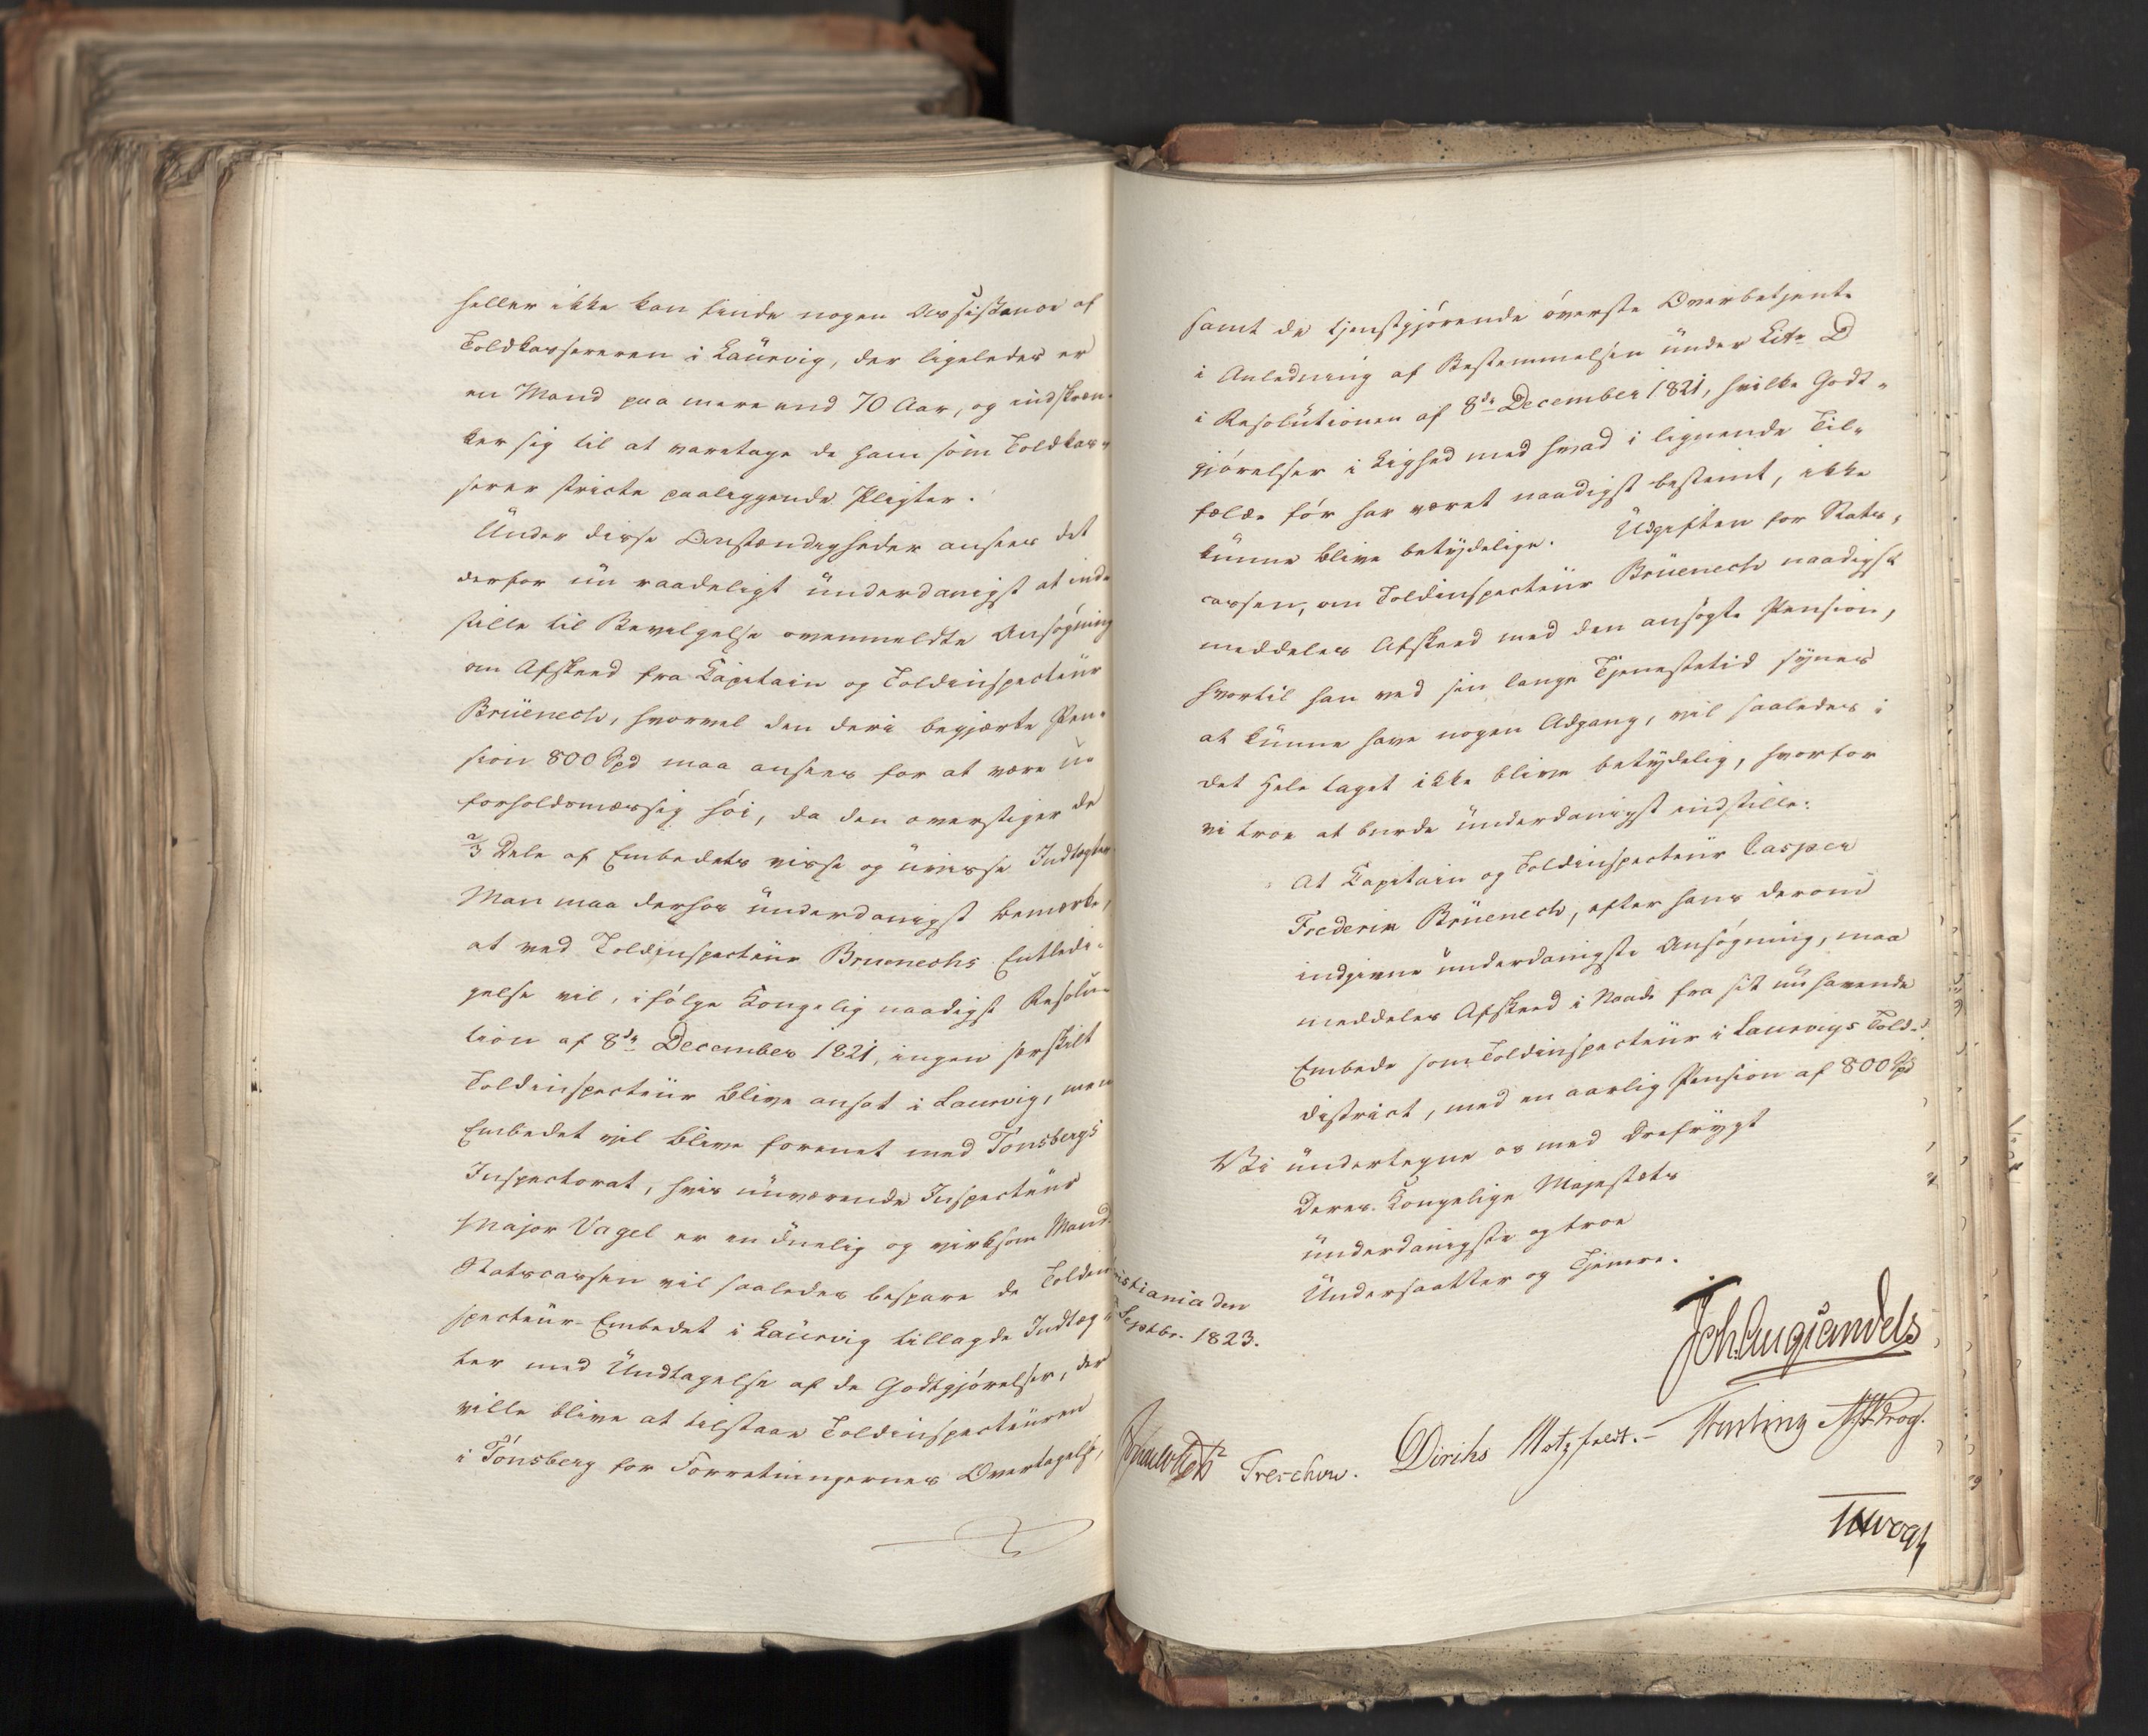 heller ikke kan finde nogen Assistance af
Toldkassereren i Laurvig, der ligeledes er
en Mand paa mere end 70 Aar, og indskræn-
ker sig til at varetage de ham som Toldkas-
serer stricte paaliggende Pligter.
Under disse Omstændigheder ansees det
derfor nu raadeligt underdanigst at ind-
stille til Bevilgelse ovenmeldte Ansøgning
om Afskeed fra Capitain og Toldinspecteur
Brüenech, hvorvel den deri begjærte Pen-
sion 800 Spd maa ansees for at være u-
forholdsmæssig høi, da den overstiger de
2/3 Dele af Embedets visse og uvisse Indtægter
Man maa derhos underdanigst bemærke,
at ved Toldinspecteur Bruenechs Entledi-
gelse vil, ifølge Kongelig naadigst Resolu-
tion af 8de December 1821, ingen særskilt
Toldinspecteur blive ansat i Laurvig, men
Embedet vil blive forenet med Tonsbergs
Inspectorat, hvis nuværende Inspecteur
Major Vagel er en duelig og virksom Mand.
Statscassen vil saaledes bespare de Toldin-
specteur-Embedet i Laurvig tillagde Indtæg-
ter med Undtagelse af de Godtgjørelser, der
ville blive at tilstaae Toldinspecteuren
i Tønsberg for Forretningernes Overtagelse,
samt de tjenstgjørende øverste Overbetjente
i Anledning af Bestemmelsen under Litr D
i Resolutionen af 8de December 1821, hvilke Godt-
gjørelser i Lighed med hvad i lignende Til-
fælde før har været naadigst bestemt, ikke
kunne blive betydelige. Udgiften for Stats-
cassen, om Toldinspecteur Brüenech naadigst
meddeles Afskeed med den ansøgte Pension,
hvortil han ved sin lange Tjenestetid synes
at kunne have nogen Adgang, vil saaledes i
det Hele taget ikke blive betydelig, hvorfor
vi troe at burde underdanigst indstille:
At Capitain og Toldinspecteur Casper
Frederik Brüenech, efter hans derom
indgivne underdanigste Ansøgning, maa
meddeles Afskeed i Naade fra sit nu havende
Embede som Toldinspecteur i Laurvigs Told-
district, med en aarlig Pension af 800 Spd
Vi undertegne os med Ærefrygt
Deres Kongelige Majestæts
underdanigste og troe
Undersaatter og Tjenere.
istiania den
Septbr. 1823.
Joh. Aug. Sandels
Treschow. Diriks Motzfeldt.